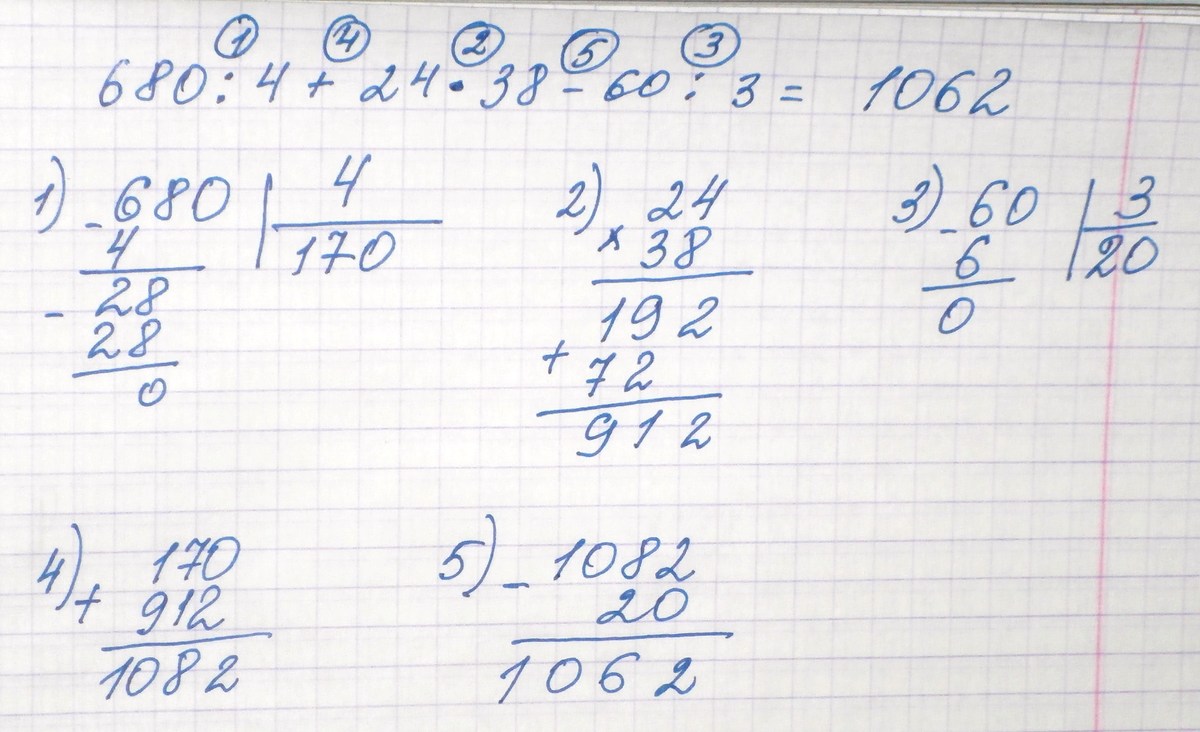 ① ④ ② ⑤ ③
680 : 4 + 24 · 38 - 60 : 3 = 1062
1) - 680 | 4
4 170
- 28
28
0
2) 24
× 38
192
+ 72
912
3) - 60 | 3
6 20
0
4) 170
+ 912
1082
5) - 1082
20
1062